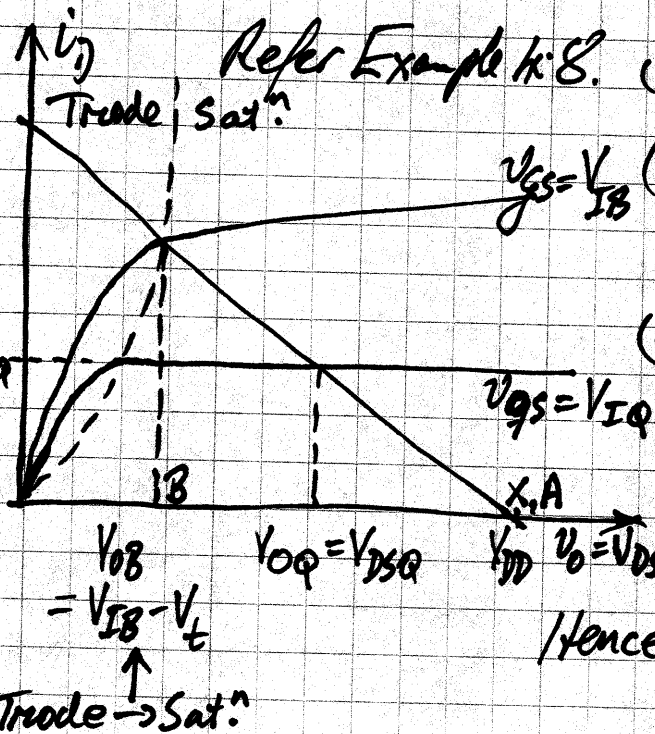 i_D
Refer Example 4.8.
Triode | Satⁿ.
v_GS = V_IB
v_GS = V_IQ
B
X, A
V_OB
V_OQ = V_DSQ
V_DD
v_o = v_DS
= V_IB - V_t
Hence
Triode → Satⁿ.